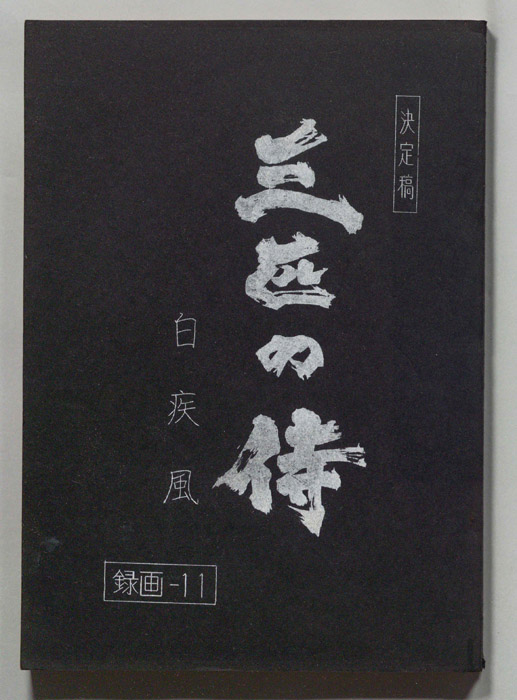 決定稿
三匹の侍
白疾風
録画-11